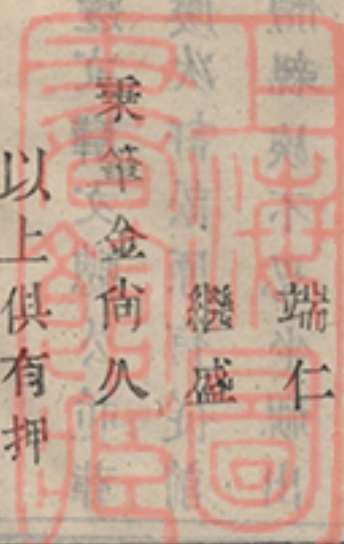 端仁
繼盛
秉筆金尙久
以上俱有押